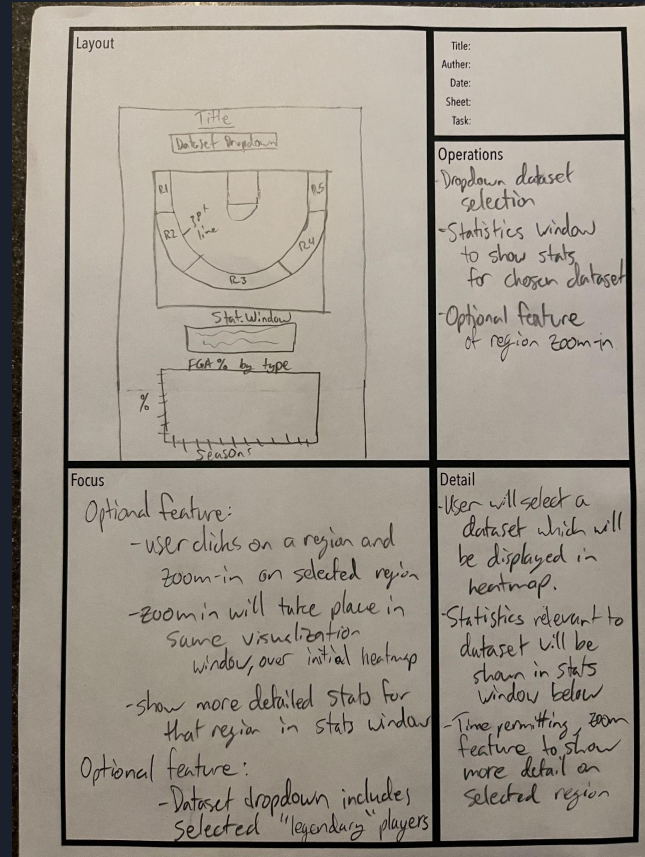 Layout
Title
Dataset Dropdown
R1
R5
R2
3pt
line
R4
R3
Stat. Window
FGA % by type
%
Seasons
Title:
Auther:
Date:
Sheet:
Task:
Operations
-Dropdown dataset
selection
-Statistics window
to show stats
for chosen dataset
-Optional feature
of region zoom-in
Focus
Optional feature:
-user clicks on a region and
zoom-in on selected region
-zoom in will take place in
same visualization
window, over initial heatmap
-show more detailed stats for
that region in stats window
Optional feature:
-Dataset dropdown includes
selected "legendary" players
Detail
-User will select a
dataset which will
be displayed in
heatmap.
-Statistics relevant to
dataset will be
shown in stats
window below
-Time permitting, zoom
feature to show
more detail on
selected region